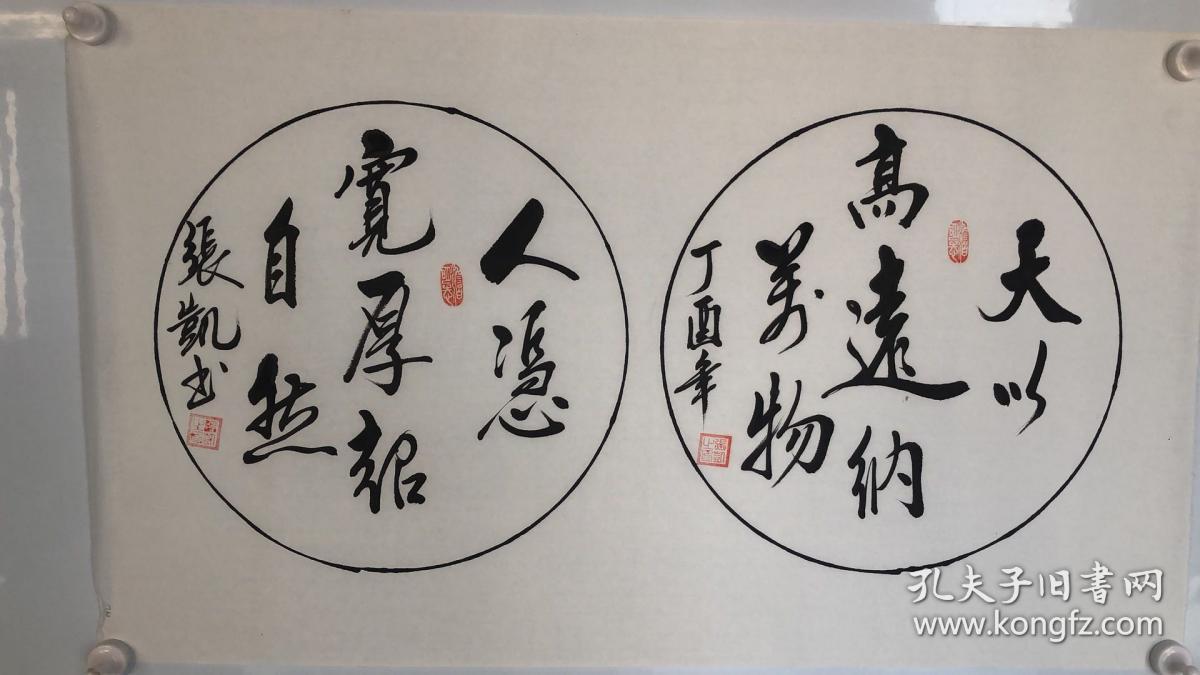 天以
高遠納
萬物
丁酉年
人憑
寬厚紹
自然
張凱书
孔夫子旧書网
www.kongfz.com